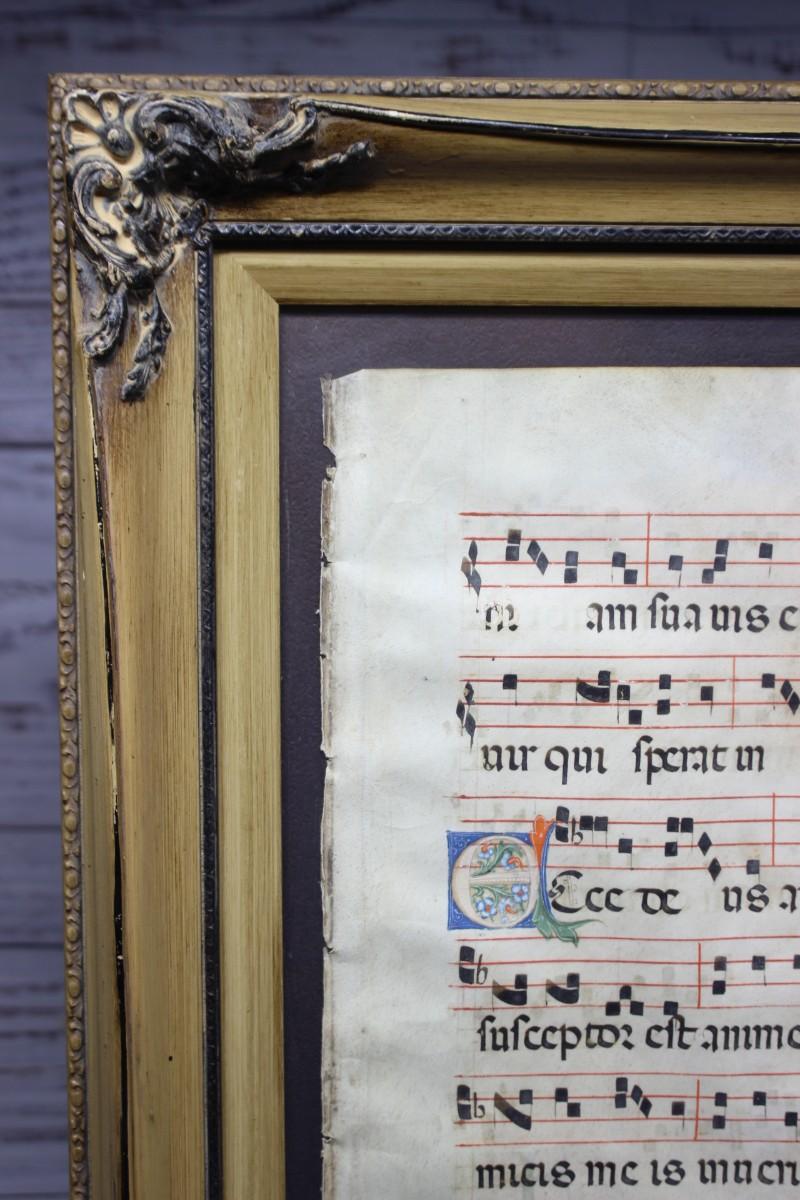 am sua uis
uir qui sperat in
Ecce de us a
susceptor est anime
micis me is